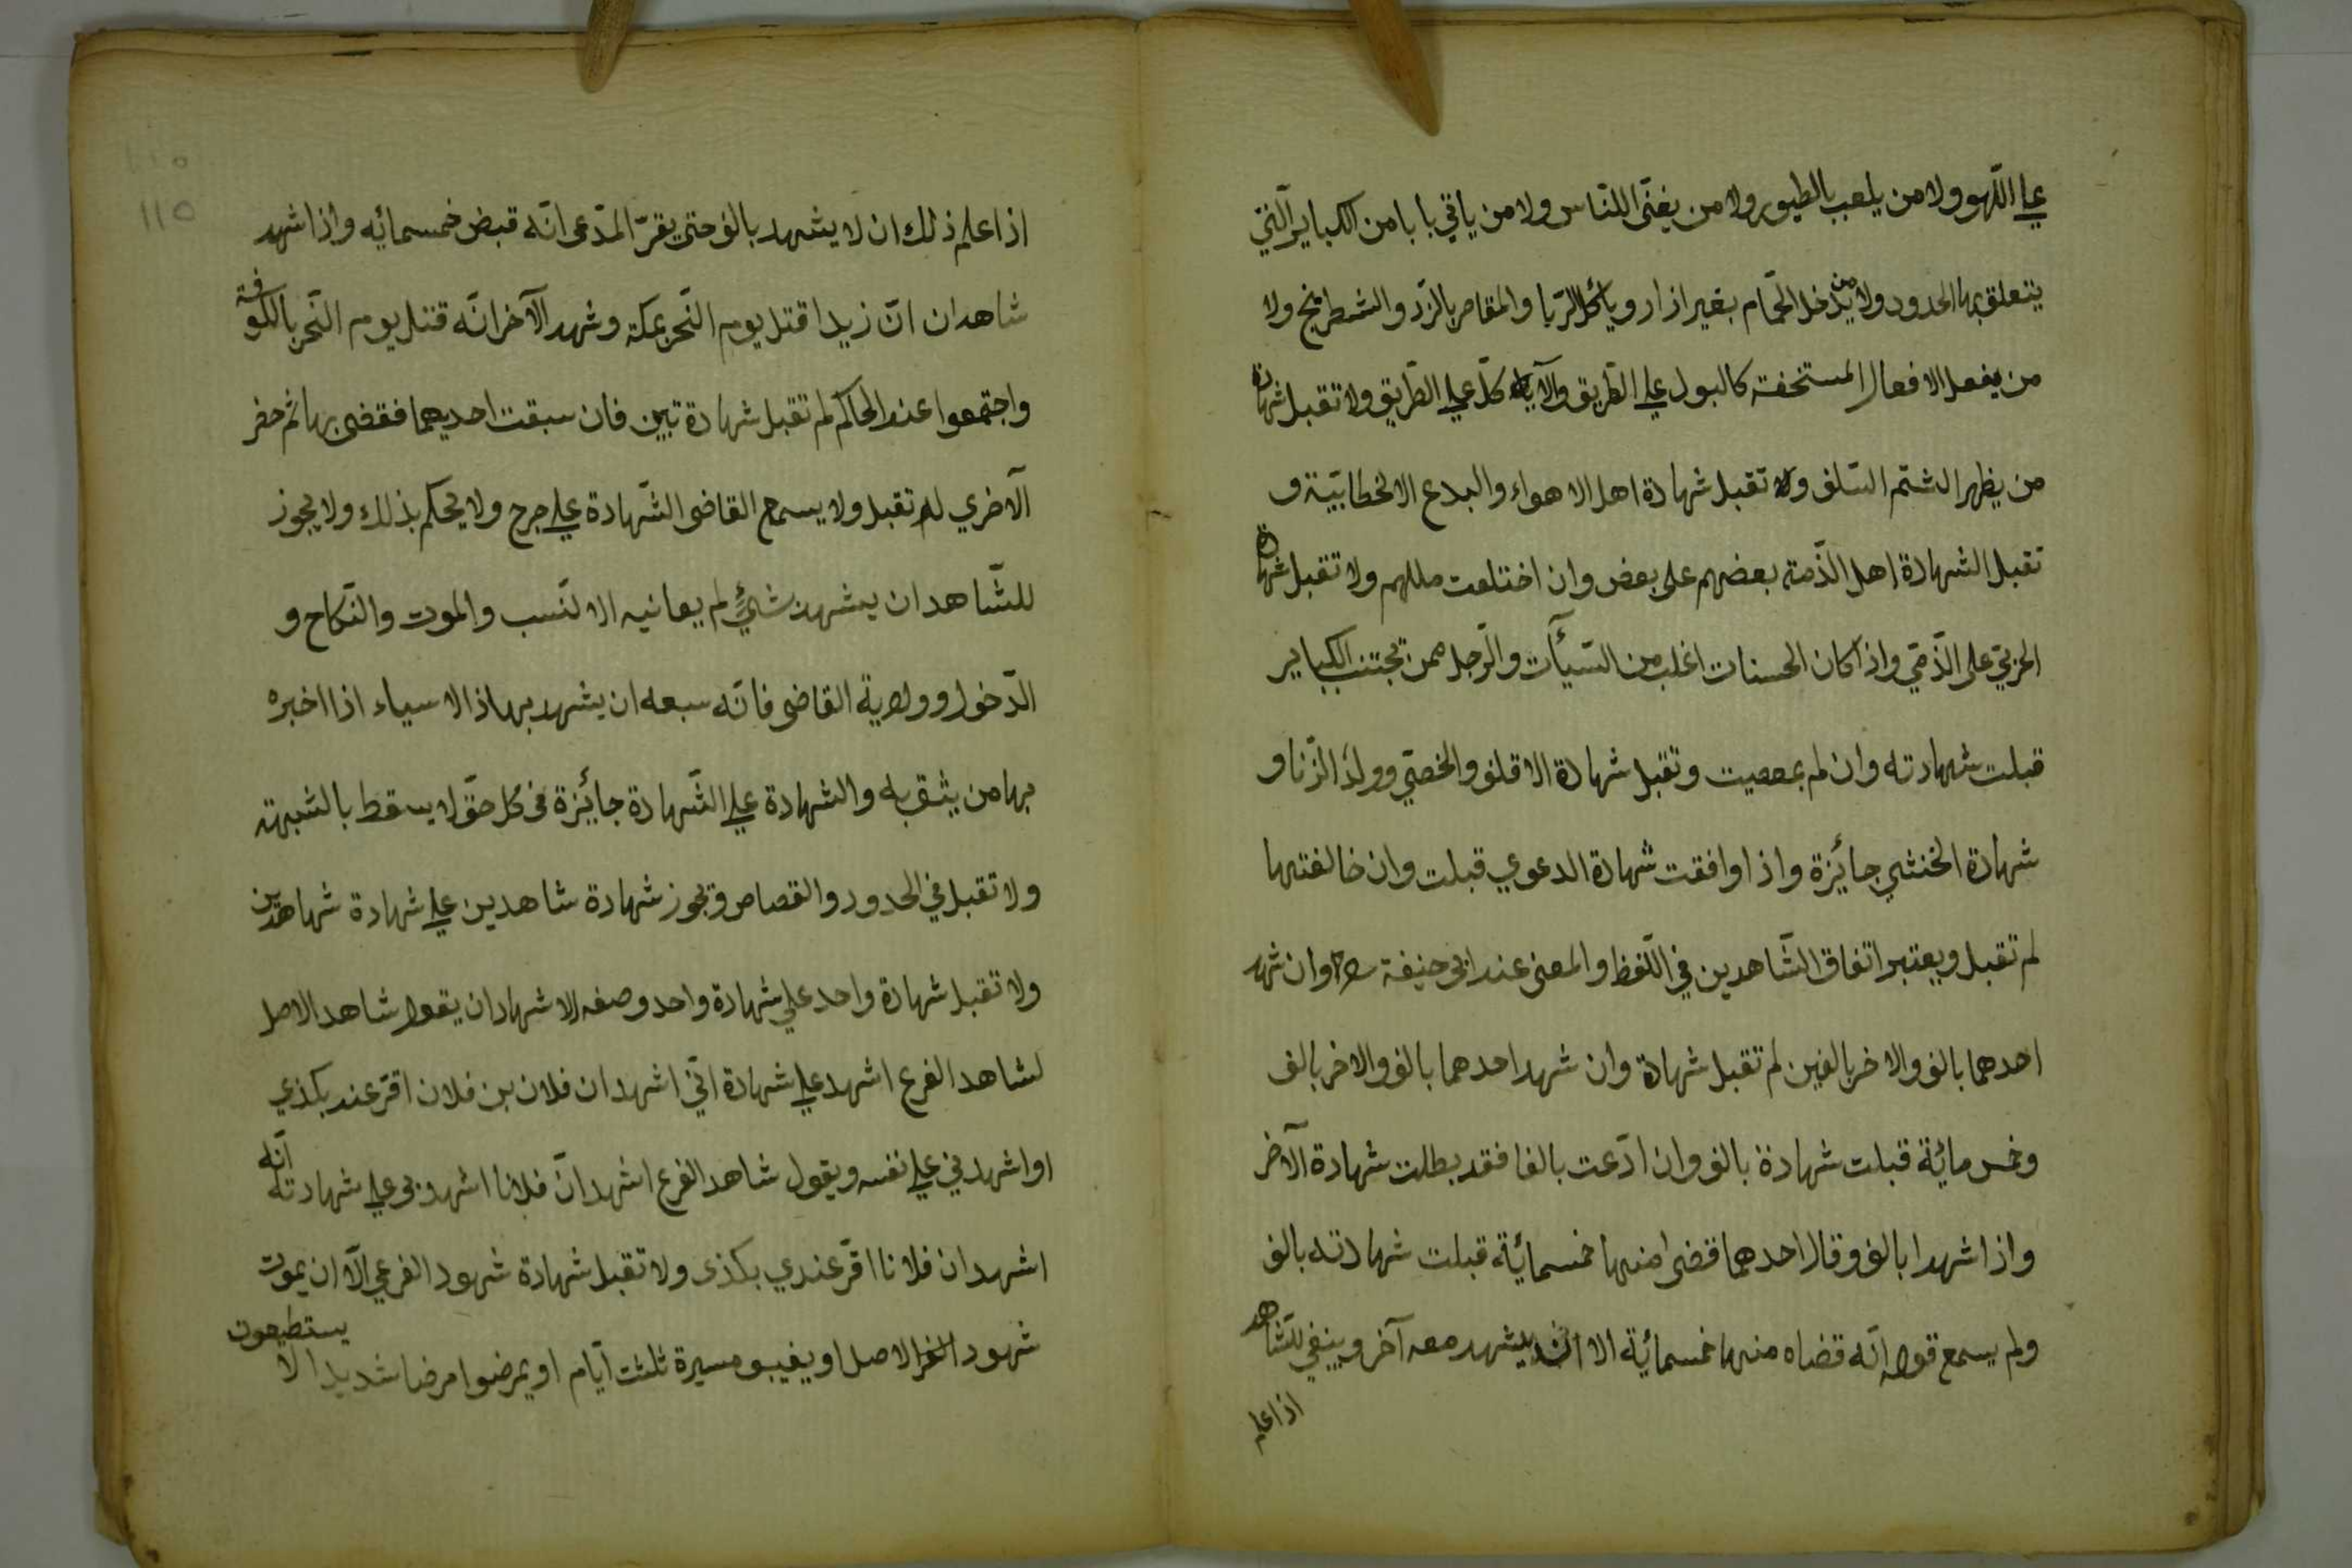 علي اللّهو ولا من يلعب بالطيور ولا من يغنّى اللنّاس ولا من ياتي بابا من الكباير الّتي
يتعلق بها الحدود ولا من يدخل الحمّام بغير ازار ويأكل الرّبا والمقامر بالنّرد والشطرنج ولا
من يفعل الافعال المستخفة كالبول علي الطّريق والآيا كل علي الطّريق ولا تقبل شهادة
من يظهر الشتم السّلف ولا تقبل شهادة اهل الاهواء والبدع الا لخطابيّة و
تقبل الشهادة اهل الذّمة بعضهم على بعض وان اختلعت مللهم ولا تقبل شهادة
الحربيّ على الذّمّي واذا كان الحسنات اغلب من السّيأت والرّجل ممن تجتنب الكباير
قبلت شهادته وان لم بمعصيت وتقبل شهادة الاقلف والخصّي وولد الزّنا و
شهادة الخنثي جائزة واذا وافقت شهادة الدعوي قبلت وان خالفتها
لم تقبل ويعتبر اتفاق الشّاهدين في اللّفظ والمعنى عند ابى حنيفة رح وان شهد
احدهما بالف والاخر بالفين لم تقبل شهادة وان شهد احدهما بالف والاخر بالف
وخمس مائة قبلت شهادة بالف وان ادّعت بالفا فقد بطلت شهادة الآخر
واذا شهدا بالف وقال احدهما قضى منها خمسمائة قبلت شهادته بالف
ولم يسمع قوله انّه قضاه منها خمسمائة الا ان يشهد معه آخر وينبغي للشّاهد
اذا علم
١١٥
اذا علم ذلك ان لا يشهد بالف حتى يقرّ المدّعى انّه قبض خمسمائه واذا شهد
شاهدان انّ زيدا قتل يوم النّحر بمكة وشهد الآخر انّه قتل يوم النّحر بالكوفة
واجتمعوا عند الحاكم لم تقبل شهادة تين فان سبقت احديهما فقضى بها ثم حضر
الآخري لم تقبل ولا يسمع القاضى الشّهادة علي جرح ولا يحكم بذلك ولا يجوز
للشّاهد ان يشهد شئ لم يعانيه الا لنّسب والموت والنّكاح و
الدّخول وولاية القاضى فانّه سبعه ان يشهد بهاذا لا سياء اذا اخبره
بها من يثق به والشهادة علي الشّهادة جائزة في كل حقّ لا يسقط بالشبهة
ولا تقبل في الحدود والقصاص وتجوز شهادة شاهدين علي شهادة شهاهدين
ولا تقبل شهادة واحد علي شهادة واحد وصفه الاشهاد ان يقول شاهد الاصل
لشاهد الفرع اشهد علي شهادة انّي اشهد ان فلان بن فلان اقرّ عند بكذي
او اشهدني علي نفسه ويقول شاهد الفرع اشهد انّ فلانا اشهدنى علي شهادته انّه
اشهد ان فلانا اقرّ عندي بكذى ولا تقبل شهادة شهود الفرعي الّا ان يموت
شهود الاصل او يغيبو مسيرة ثلثت ايّام او يمرضوا مرضا شديدا لا يستطيعون